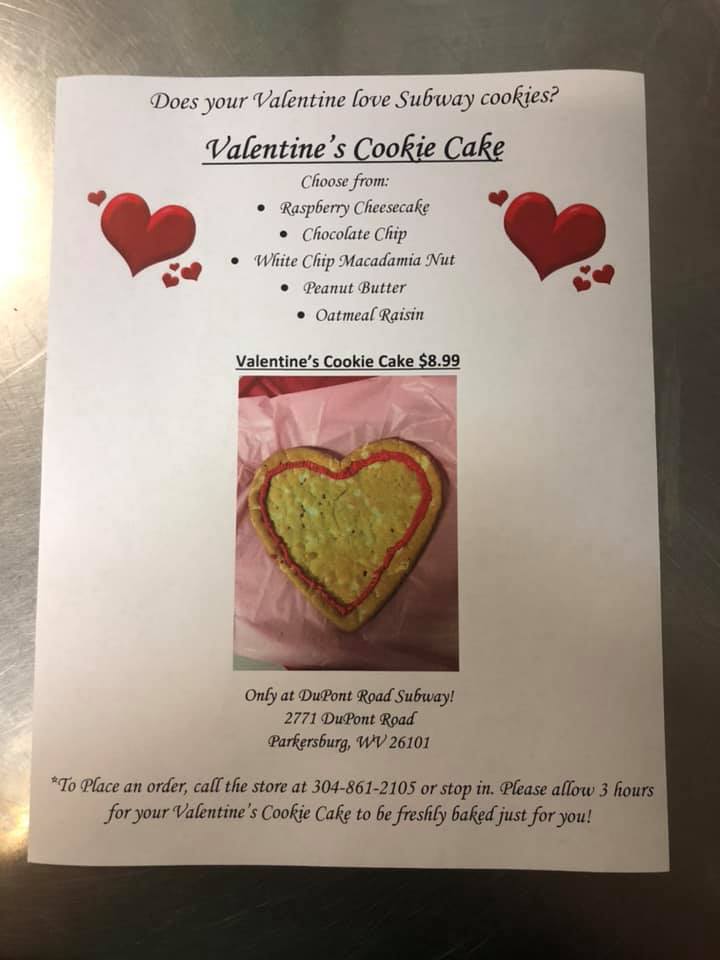 Does your Valentine love Subway cookies?
Valentine's Cookie Cake
Choose from:
• Raspberry Cheesecake
• Chocolate Chip
• White Chip Macadamia Nut
• Peanut Butter
• Oatmeal Raisin
Valentine's Cookie Cake $8.99
Only at DuPont Road Subway!
2771 DuPont Road
Parkersburg, WV 26101
*To Place an order, call the store at 304-861-2105 or stop in. Please allow 3 hours
for your Valentine's Cookie Cake to be freshly baked just for you!